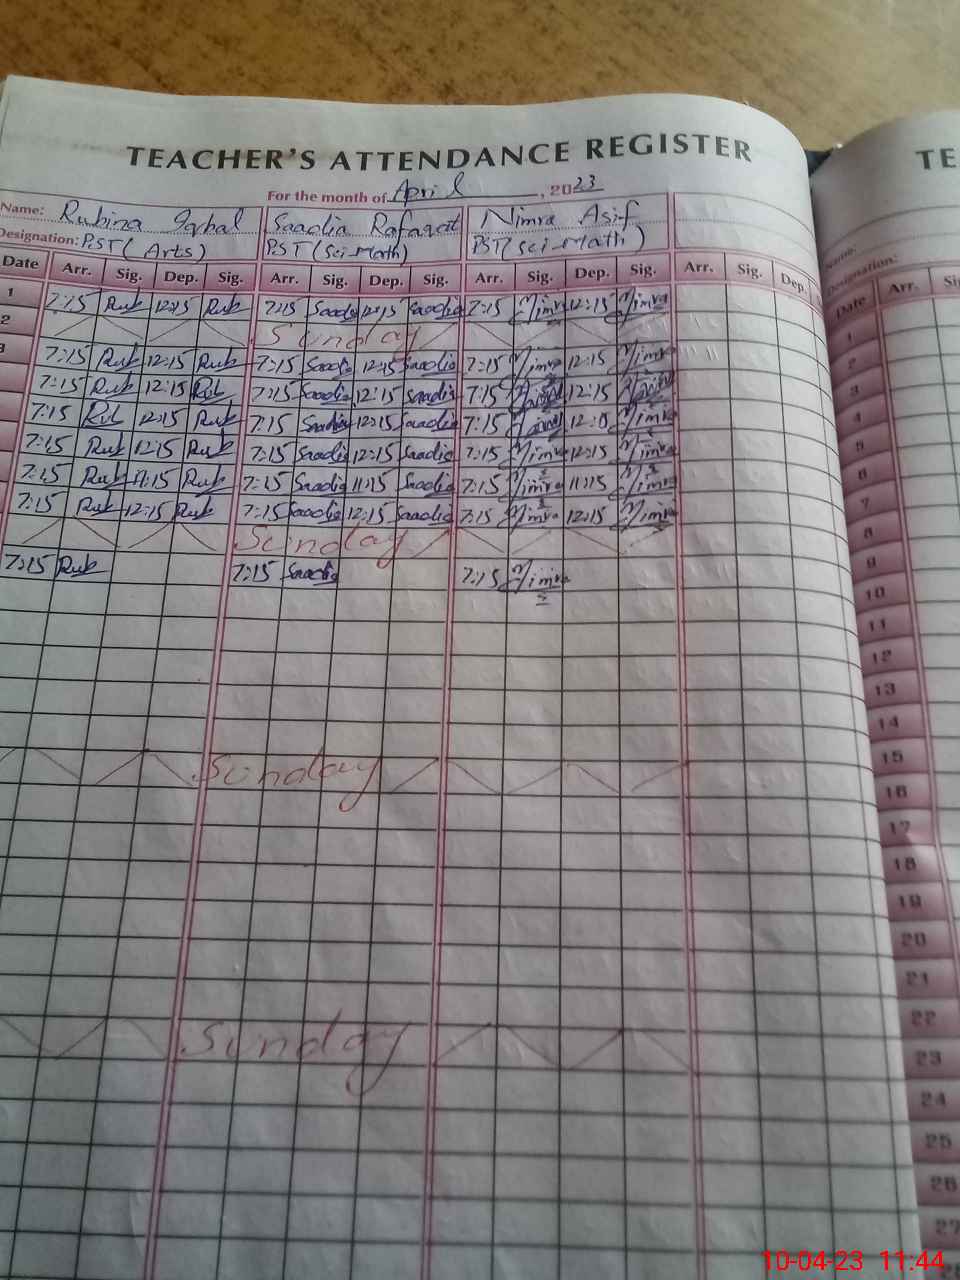 TEACHER'S ATTENDANCE REGISTER
TE
For the month of April, 2023
Name: Rubina Iqbal Saadia Rafaqat Nimra Asif
Designation: PST (Arts) PST (Sci-Math) PST (Sci-Math)
Name:
Designation:
Date Arr. Sig. Dep. Sig. Arr. Sig. Dep. Sig. Arr. Sig. Dep. Sig. Arr. Sig. Dep. S
Date Arr. Si
1 7:15 Rub 12:15 Rub 7:15 Saadia 12:15 Saadia 7:15 Nimra 12:15 Nimra
2 Sunday
3 7:15 Rub 12:15 Rub 7:15 Saadia 12:15 Saadia 7:15 Nimra 12:15 Nimra
7:15 Rub 12:15 Rub 7:15 Saadia 12:15 Saadia 7:15 12:15
7:15 Rub 12:15 Rub 7:15 Saadia 12:15 Saadia 7:15 12:15 Nimra
7:15 Rub 12:15 Rub 7:15 Saadia 12:15 Saadia 7:15 Nimra 12:15 Nimra
7:15 Rub 11:15 Rub 7:15 Saadia 11:15 Saadia 7:15 Nimra 11:15 Nimra
7:15 Rub 12:15 Rub 7:15 Saadia 12:15 Saadia 7:15 Nimra 12:15 Nimra
Sunday
7:15 Rub 7:15 Saadia 7:15 Nimra
Sunday
Sunday
1
2
3
4
5
6
7
8
9
10
11
12
13
14
15
16
17
18
19
20
21
22
23
24
25
26
27
10-04-23 11:44